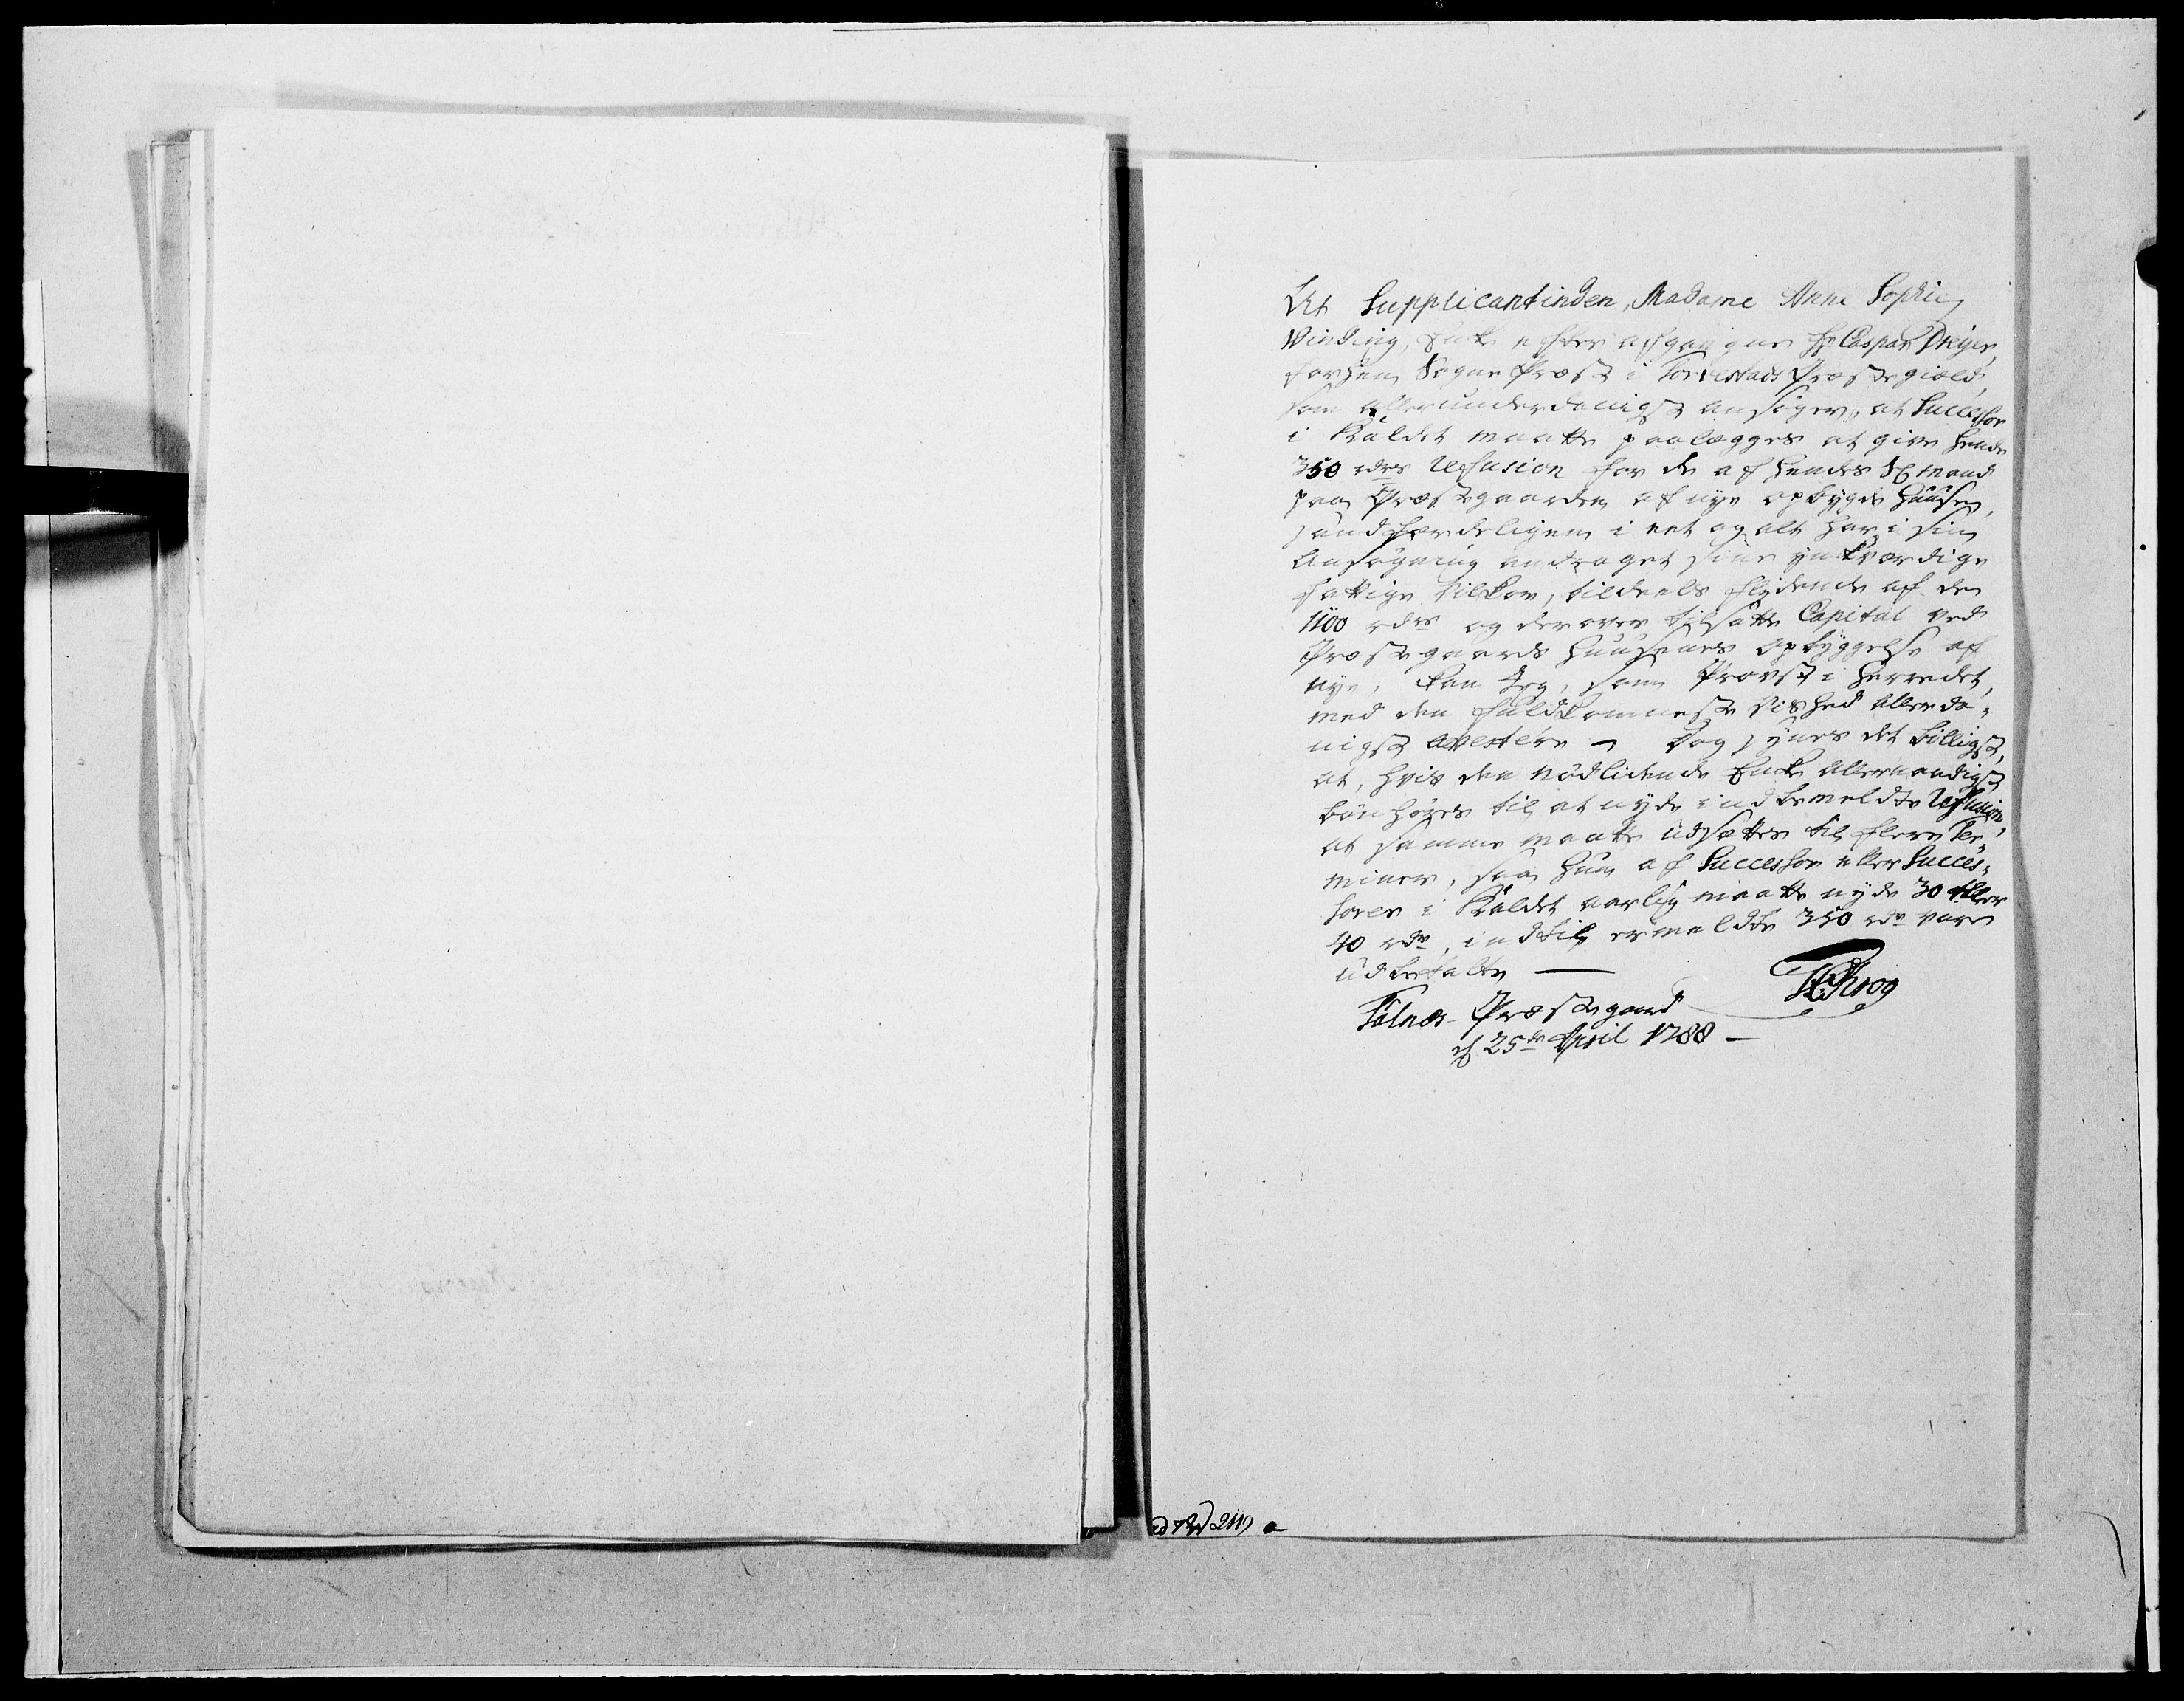 At Supplicantinden, Madame Anne Sophie
Winding, Enke efter afgangne Hr Caspar Dreijer,
forhen Sogne Præst i Torvestads Præstegield,
som allerunderdanigst ansøger, at Successor
i Kaldet maatte paalægges at give hende
350 rdrs Refusion for de af hendes Sl. Mand
paa Præstegaarden af nye opbygte Huuse,
sandfærdeligen i eet og alt har i sin
Ansøgning andraget sine ynkværdige
fattige Vilkor, tildeels flydende af den
1100 rdrs og derover tilsatte Capital ved
Præstegaards Huusenes Opbyggelse af
nye, kan Jeg, som Provst i Herredet,
med den fuldkomneste Vished Allerda¬
nigst attestere — Dog synes det billigst,
at, hvis den nødlidende Enke Allernaadigst
bønhøres til at nyde indbemeldte Refusion,
at samme maatte udsættes til flere Ter¬
miner, saa hun af Successor eller Succes¬
sorer i Kaldet aarlig maatte nyde 30 eller
40 rdr, indtil ermeldte 350 rdr vare
udbetalte —
HC Krog
Falnæs Præstegaard
d 25de April 1788 —